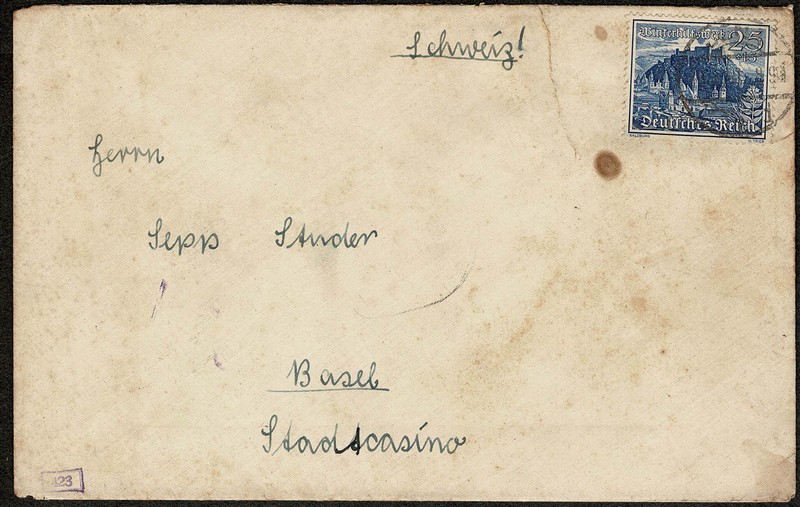 Schweiz!
Winterhilfswerk 25
+15
Deutsches Reich
SALZBURG
Herrn
Sepp Studer
Basel
Stadtcasino
423